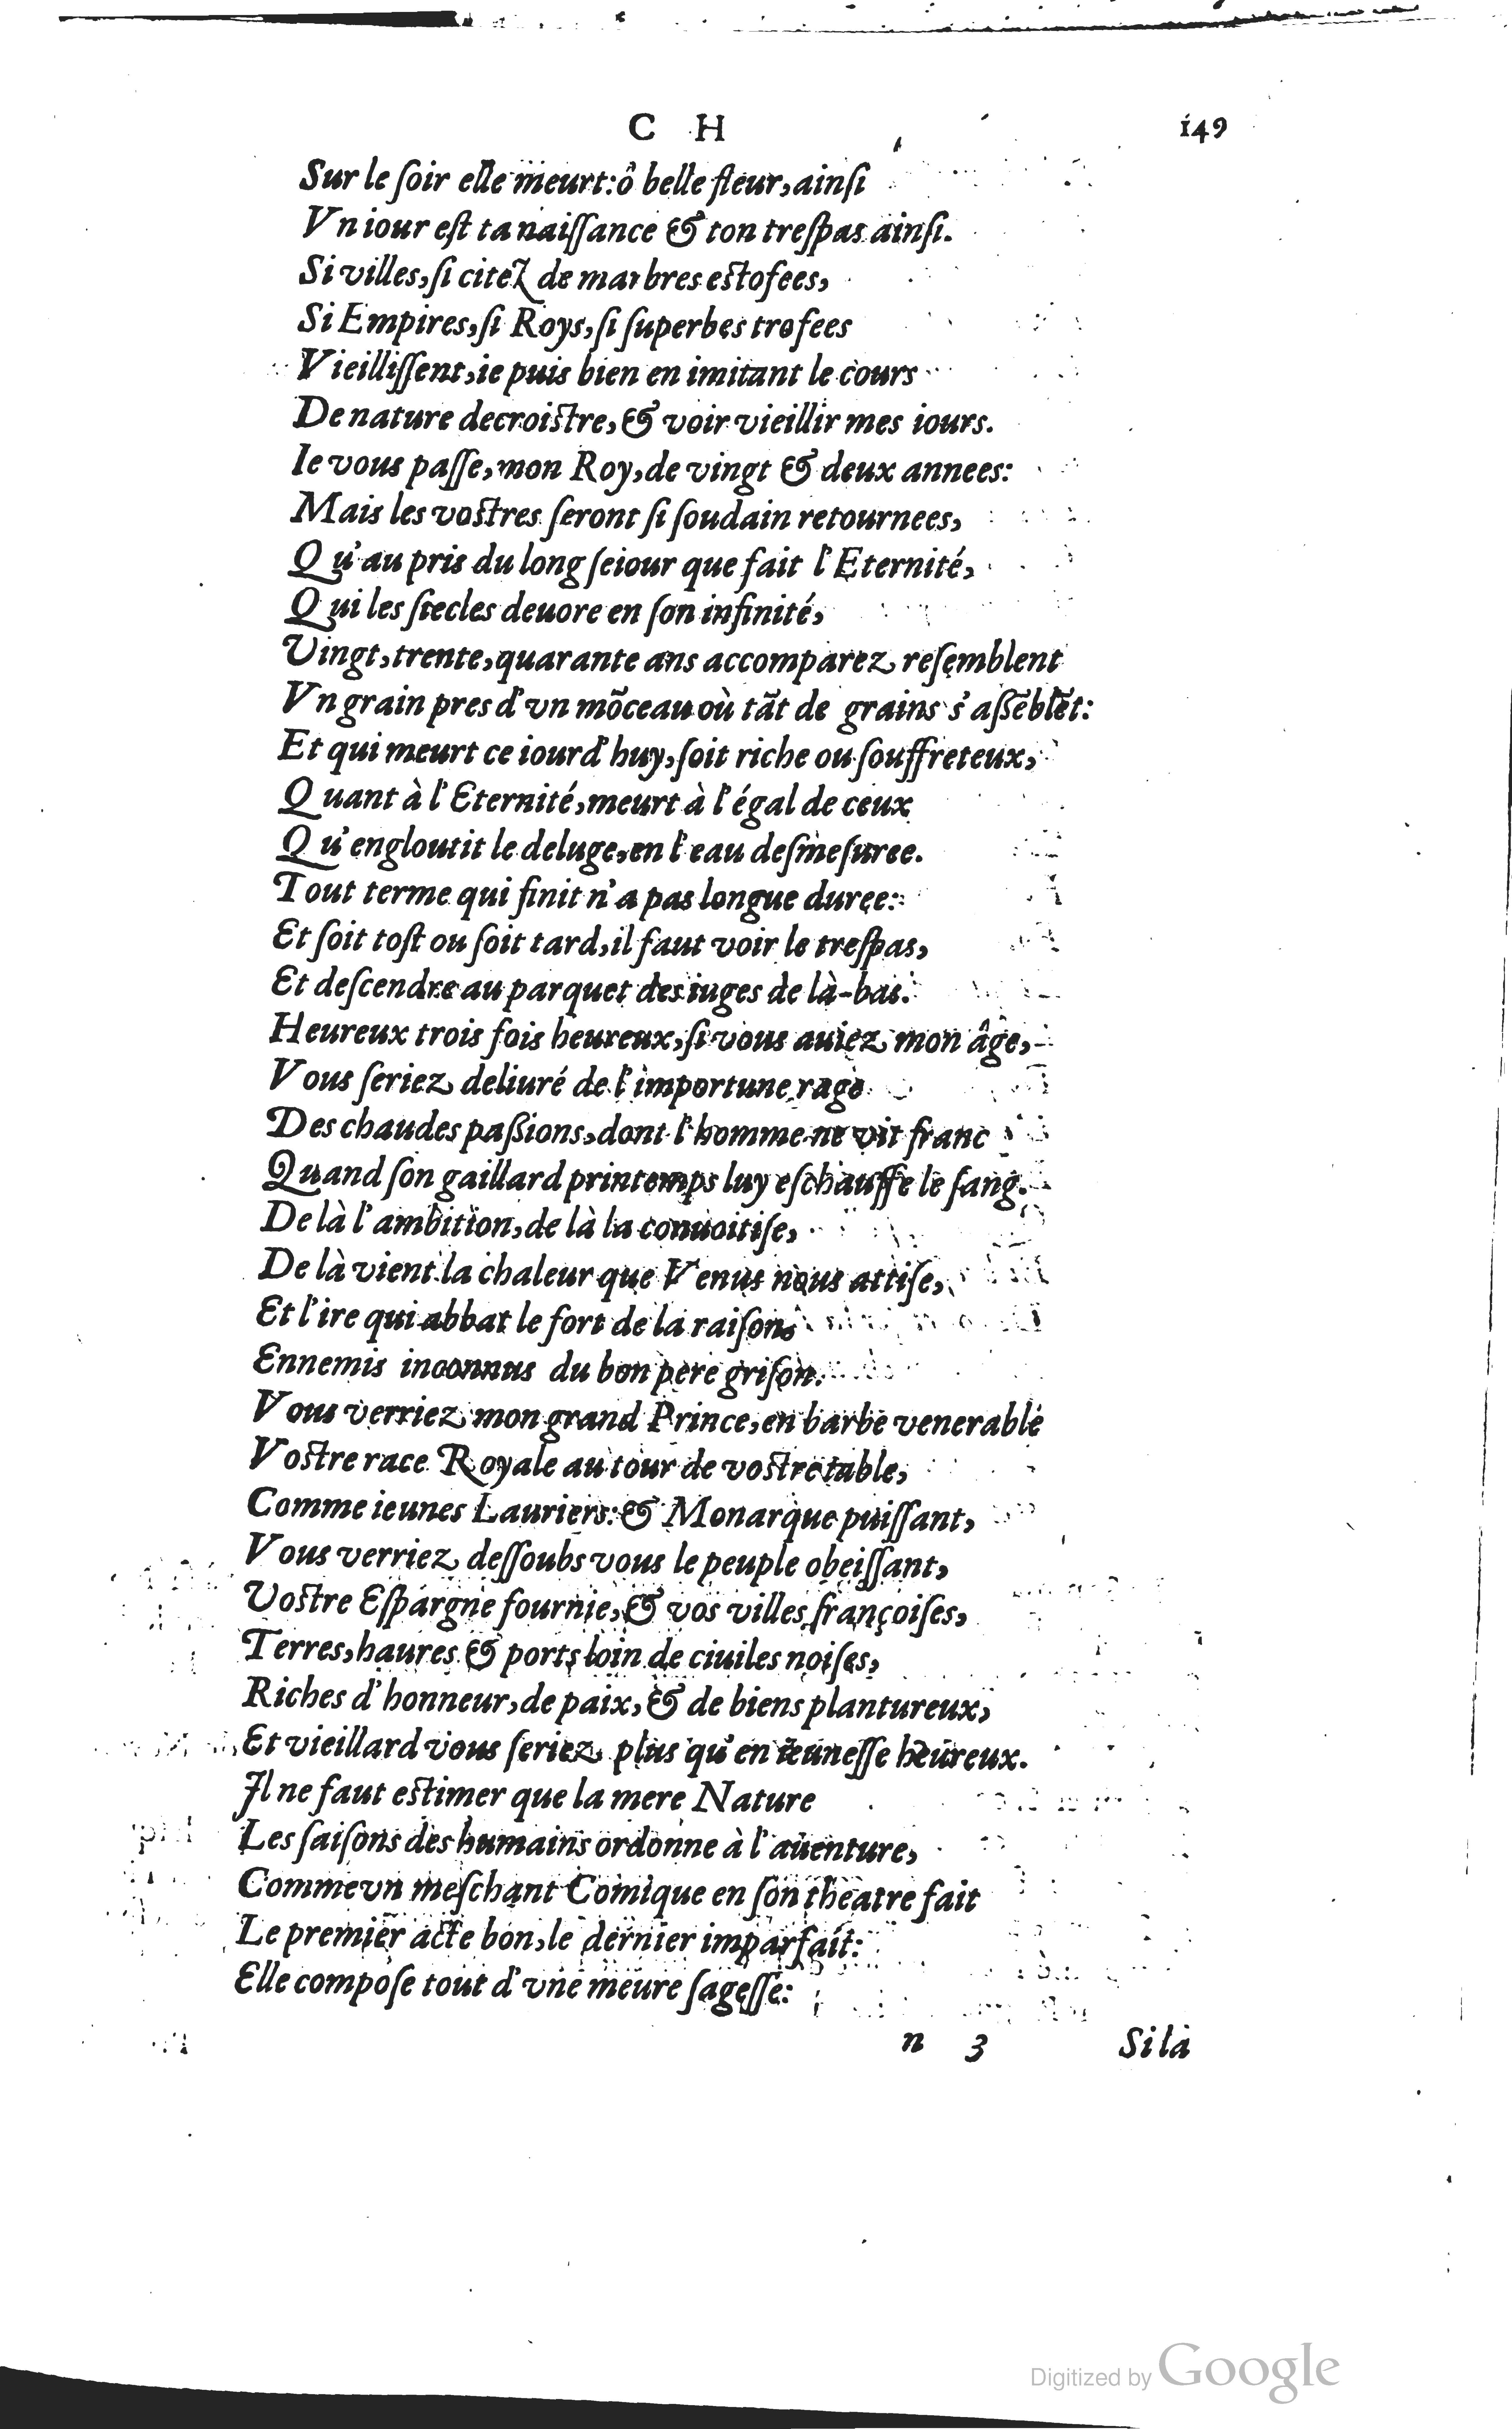 C H 149
Sur le ſoir elle meurt: ô belle fleur, ainſi
Vn iour eſt ta naiſſance & ton treſpas ainſi.
Si villes, ſi citez de marbres eſtofees,
Si Empires, ſi Roys, ſi ſuperbes trofees
Vieilliſſent, ie puis bien en imitant le cours
De nature decroiſtre, & voir vieillir mes iours.
Ie vous paſſe, mon Roy, de vingt & deux annees:
Mais les voſtres ſeront ſi ſoudain retournees,
Qu'au pris du long ſeiour que fait l'Eternité,
Qui les ſiecles deuore en ſon infinité,
Vingt, trente, quarante ans accomparez reſemblent
Vn grain pres d'vn mõceau où tãt de grains s'aßẽblẽt:
Et qui meurt ce iourd'huy, ſoit riche ou ſouffreteux,
Quant à l'Eternité, meurt à l'égal de ceux
Qu'engloutit le deluge, en l'eau deſmeſuree.
Tout terme qui finit n'a pas longue duree:
Et ſoit toſt ou ſoit tard, il faut voir le treſpas,
Et deſcendre au parquet des iuges de là-bas.
Heureux trois fois heureux, ſi vous auiez mon âge,
Vous ſeriez deliuré de l'importune rage
Des chaudes paßions, dont l'homme ne vit franc
Quand ſon gaillard printemps luy eſchauffe le ſang.
De là l'ambition, de là la conuoitiſe,
De là vient la chaleur que Venus nous attiſe,
Et l'ire qui abbat le fort de la raiſon,
Ennemis inconnus du bon pere griſon.
Vous verriez mon grand Prince, en barbe venerable
Voſtre race Royale au tour de voſtre table,
Comme ieunes Lauriers: & Monarque puiſſant,
Vous verriez deſſoubs vous le peuple obeiſſant,
Voſtre Eſpargne fournie, & vos villes françoiſes,
Terres, haures & ports loin de ciuiles noiſes,
Riches d'honneur, de paix, & de biens plantureux,
Et vieillard vous ſeriez plus qu'en ieuneſſe heureux.
Il ne faut eſtimer que la mere Nature
Les ſaiſons des humains ordonne à l'auenture,
Comme vn meſchant Comique en ſon theatre fait
Le premier acte bon, le dernier imparfait:
Elle compoſe tout d'vne meure ſageſſe:
n 3 Si la
Digitized by Google